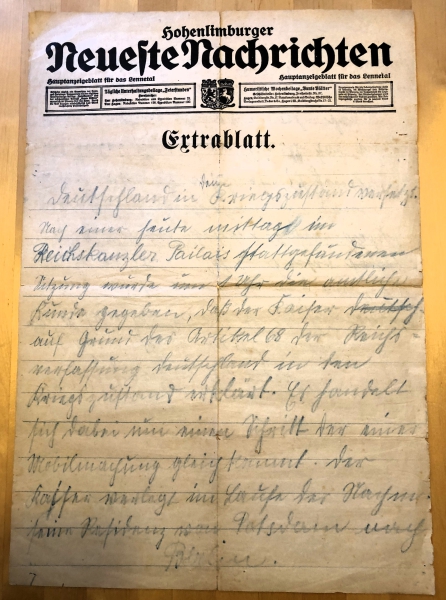 Hohenlimburger
Neueste Nachrichten
Hauptanzeigeblatt für das Lennetal
Hauptanzeigeblatt für das Lennetal
Tägliche Unterhaltungsbeilage „Feierstunden“
Extrablatt.
den
Deutschland in Kriegszustand versetzt.
Nach einer heute mittag im
Reichskanzler Pailais stattgefundenen
Sitzung wurde um Uhr die amtliche
Kunde gegeben, daß der Kaiser deutsch
auf Grund des Artikel 68 der Reichs
verfassung Deutschland in den
Kriegszustand erklärt. Es handelt
sich dabei um einen Schritt der einer
Mobilmachung gleichkommt. Der
Kaiser verlegt im Laufe des Nachm
seine Residenz von Potsdam nach
Berlin.